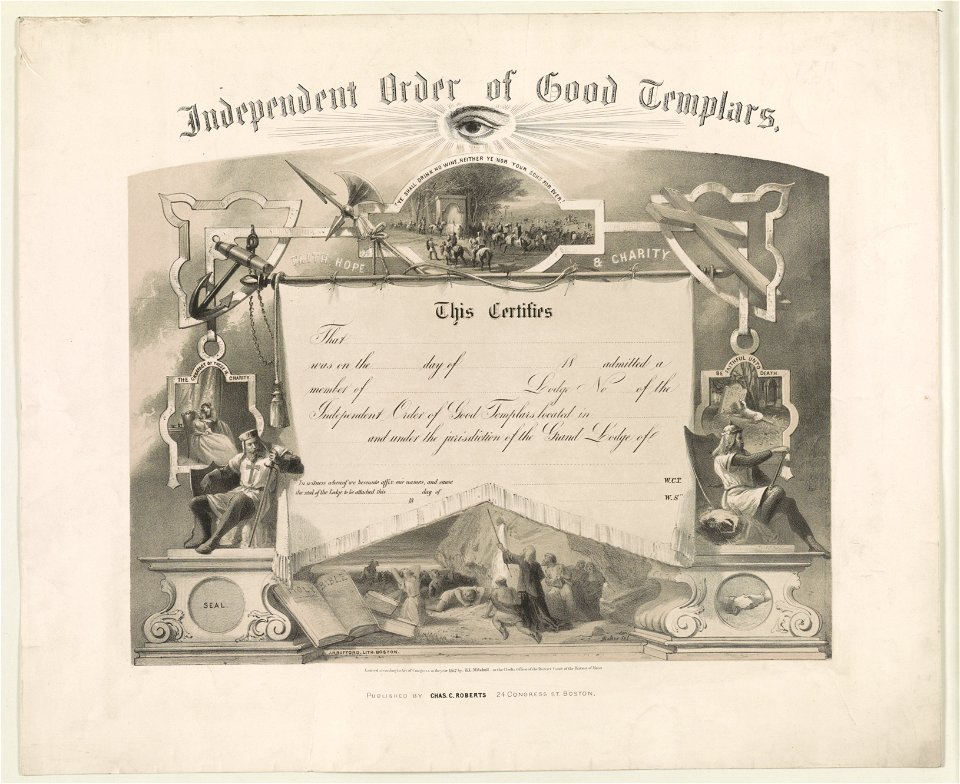 Independent Order of Good Templars,
"YE SHALL DRINK NO WINE, NEITHER YE NOR YOUR SONS FOR EVER."
FAITH, HOPE & CHARITY
This Certifies
That
was on the day of 18 admitted a
member of Lodge No. of the
Independent Order of Good Templars located in
and under the jurisdiction of the Grand Lodge of
In witness whereof we hereunto affix our names, and cause W.C.T.
the seal of the Lodge to be attached this day of W.S.
18
THE GREATEST OF THESE IS CHARITY
BE FAITHFUL UNTO DEATH
SEAL.
HOLY BIBLE
J.H. BUFFORD, LITH. BOSTON.
Entered according to Act of Congress in the year 1867 by in the Clerk's Office of the District Court of the District of
PUBLISHED BY CHAS. C. ROBERTS 24 CONGRESS ST. BOSTON.